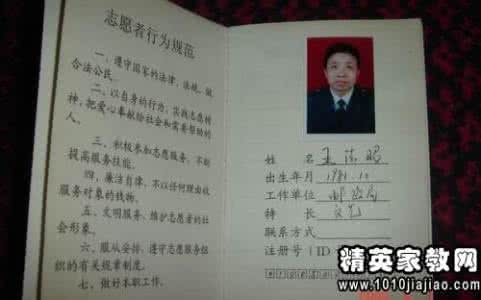 志愿者行为规范
一、遵守国家的法律、法规，做
合法公民。
二、以自身的行为，实践志愿精
神，把爱心奉献给社会和需要帮助的
人。
三、积极参加志愿服务，不断
提高服务技能。
四、廉洁自律，不以任何理由收
服务对象的钱物。
五、文明服务，维护志愿者的社
会形象。
六、服从安排，遵守志愿服务组
织的有关规章制度。
七、做好本职工作。
姓 名
出生年月 1981.10
工作单位 邮政局
特 长 文艺
联系方式
注册号（ID
精英家教网
www.1010jiajiao.com